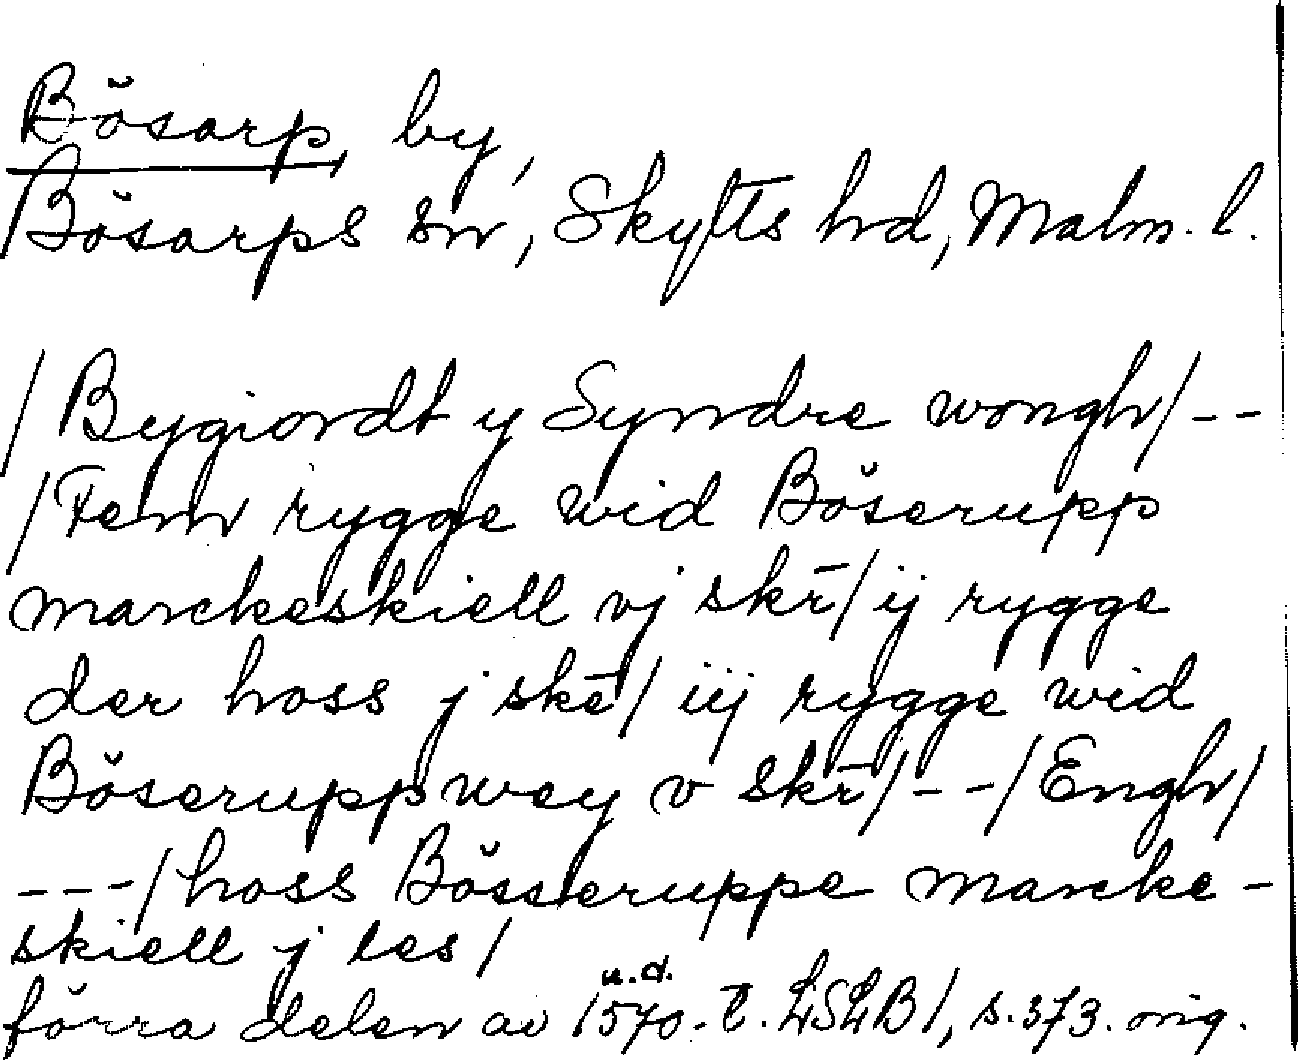 Bösarp, by,
Bösarps sn, Skytts hd, Malm. l.
/Bygiordt y Syndre wongh/--
/Fem rygge wid Böserupp
marckeskiell vj skr̄/ ij rygge
der hoss j skē/ iij rygge wid
Böseruppwey v skr̄/--/Engh/
---/hoss Bösseruppe marcke-
skiell j les/
förra delen av 1570. u.d. t. LSLB1, s.373. orig.